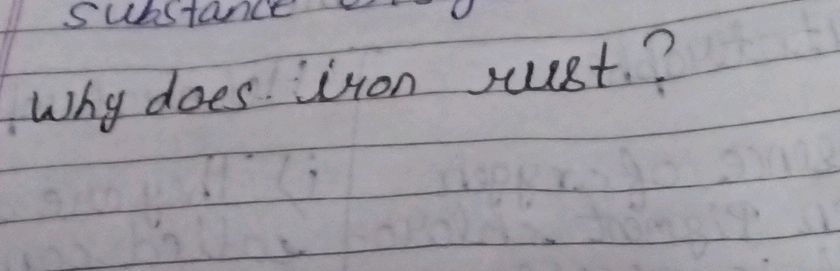 substance
Why does iron rust.?